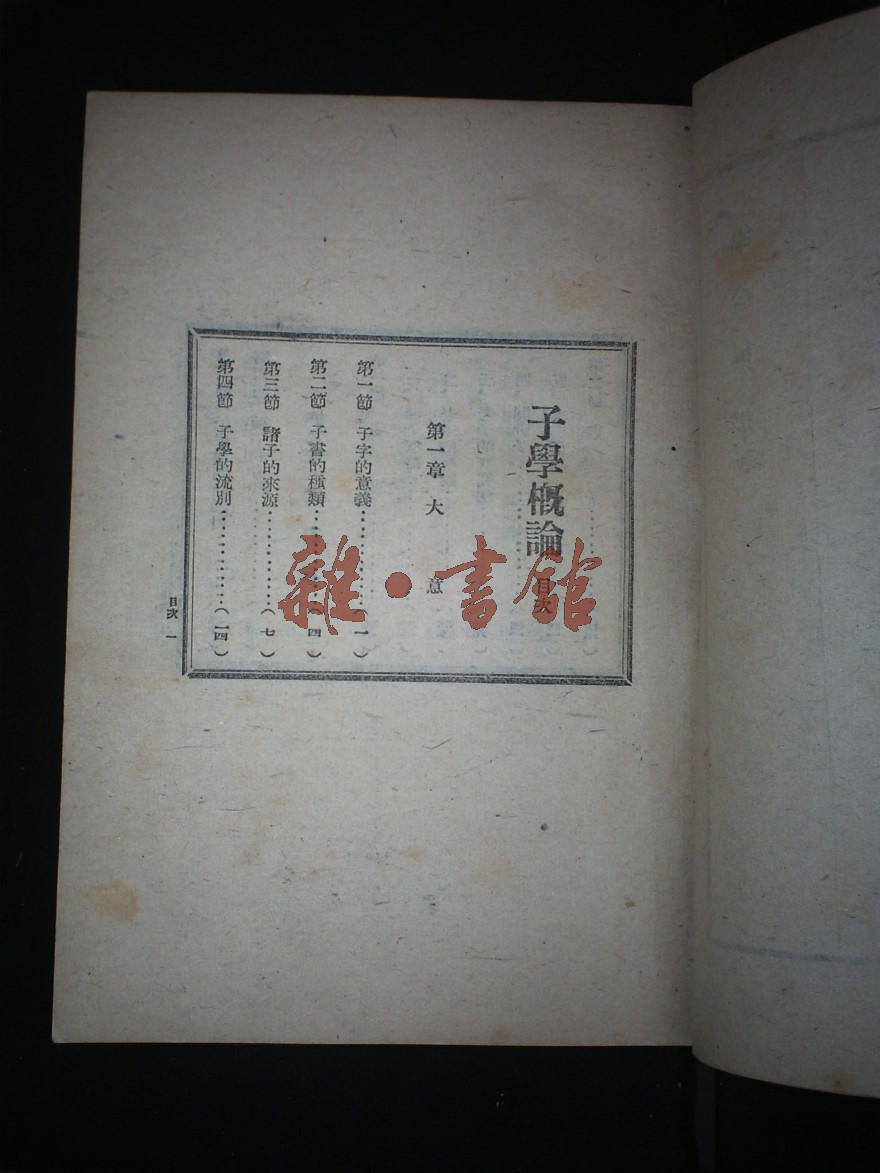 子學概論 目次
第一章 大 意
第一節 子字的意義…………(一)
第二節 子書的種類…………(四)
第三節 諸子的來源…………(七)
第四節 子學的流別…………(一四)
目次 一
雜·書館